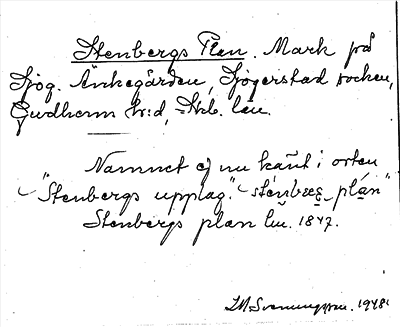 Stenbergs Plan. Mark på
Sjög. Änkegården, Sjogerstad socken,
Gudhem hr:d, Skb. län.
Namnet ej nu känt i orten
"Stenbergs upplag."
Stenbergs plan lm. 1847.
1948